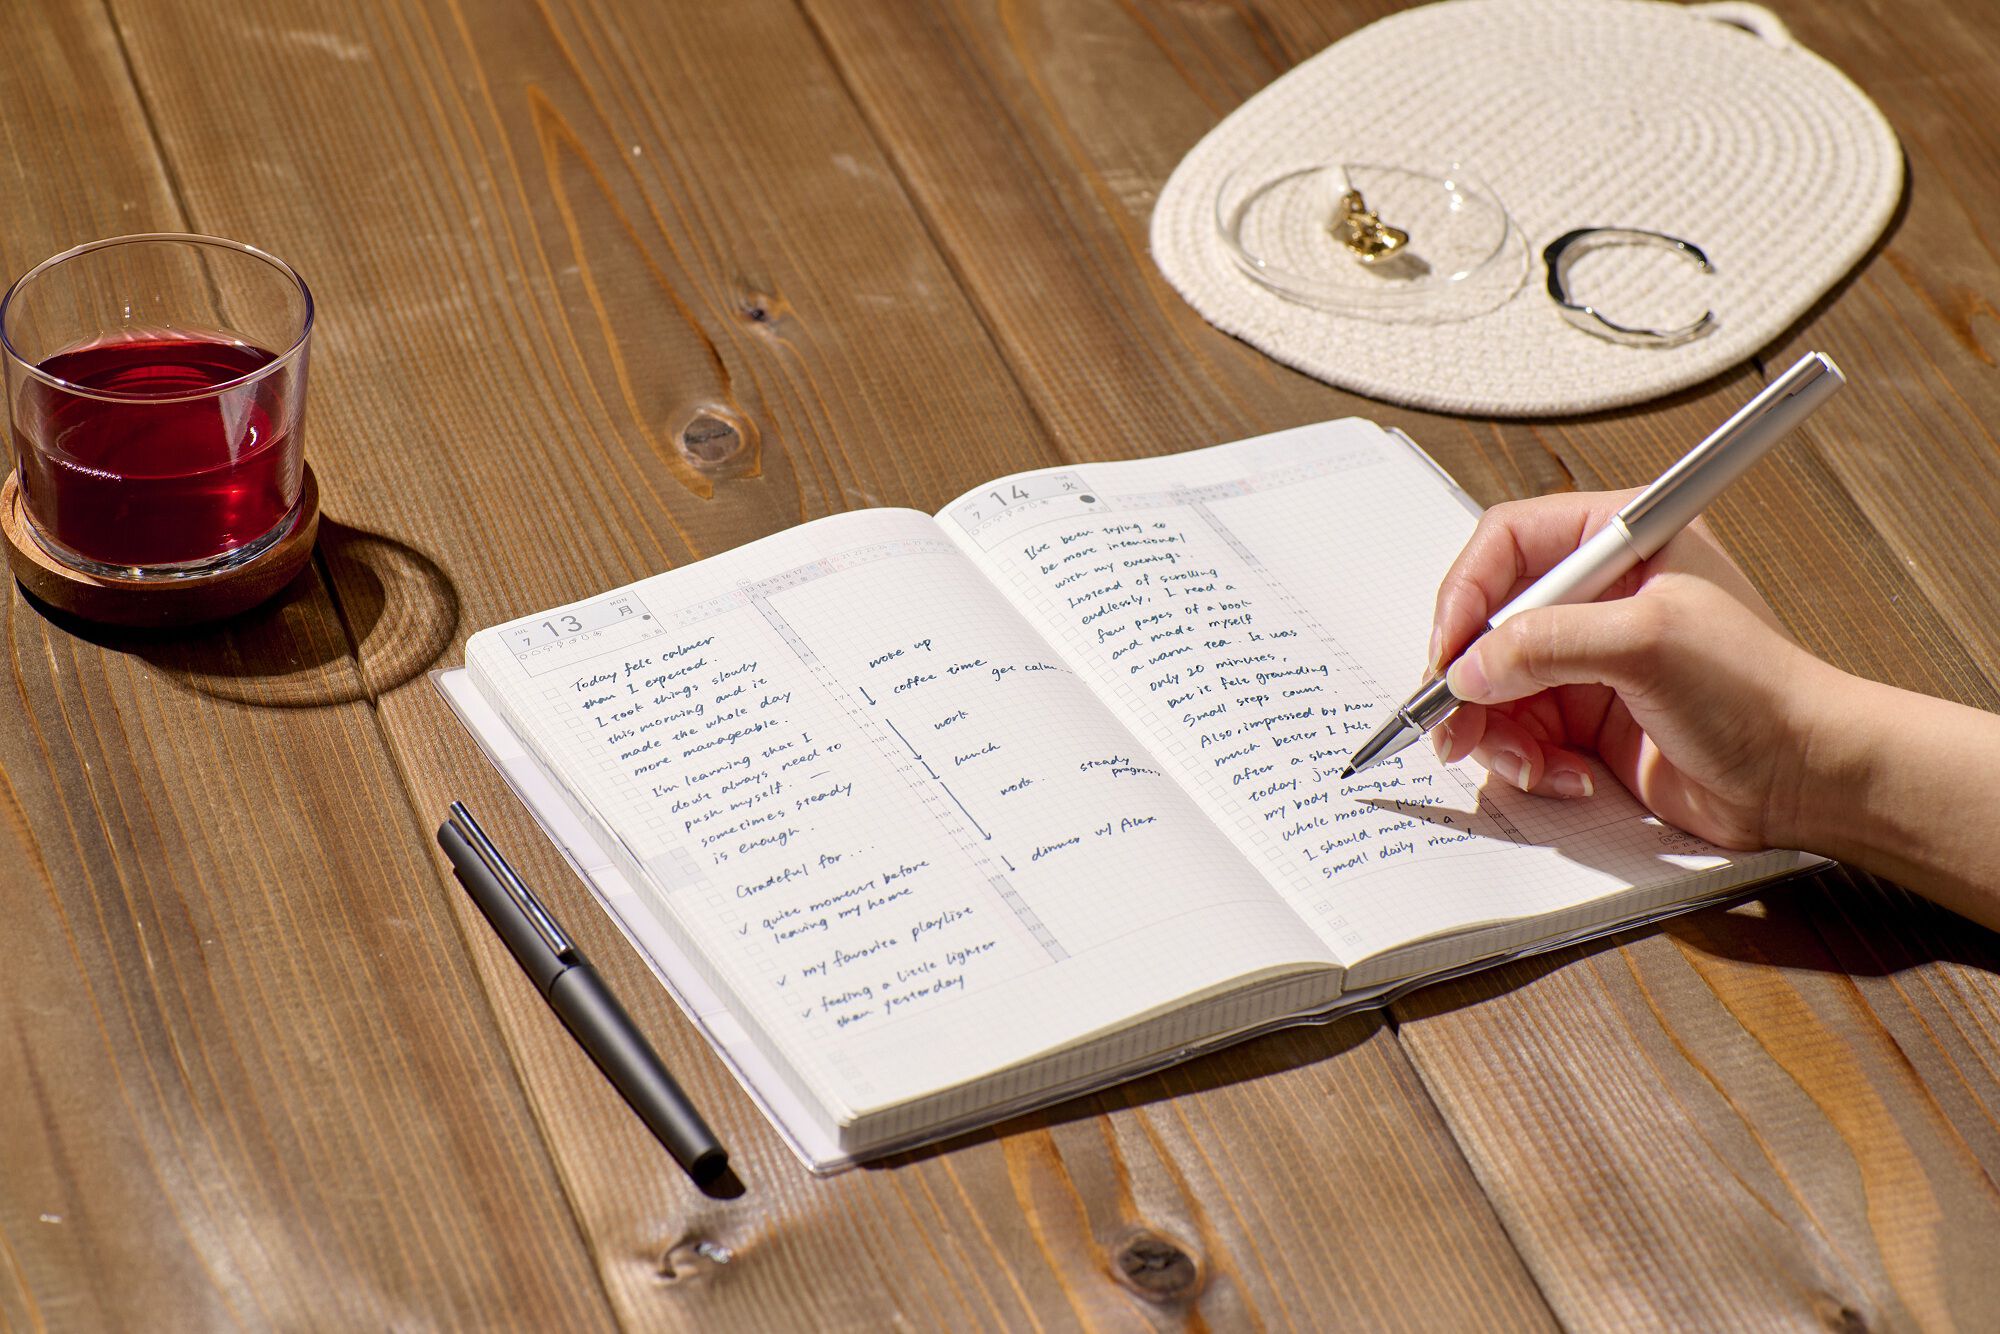 JUL
MON
7
13
月
先負
Today felt calmer
than I expected.
I took things slowly
this morning and it
made the whole day
more manageable.
I'm learning that I
don't always need to
push myself.
sometimes steady
is enough.
Grateful for...
✓ quiet moment before
leaving my home
✓ my favorite playlist
✓ feeling a little lighter
than yesterday
woke up
coffee time
get calm..
work
lunch
work.
steady
progress
dinner w/ Alex
JUL
TUE
7
14
火
I've been trying to
be more intentional
with my evenings.
Instead of scrolling
endlessly, I read a
few pages of a book
and made myself
a warm tea. It was
only 20 minutes,
but it felt grounding.
Small steps count.
Also, impressed by how
much better I felt
after a short
today. Just
my body changed my
whole mood. Maybe
I should make it a
small daily ritual.